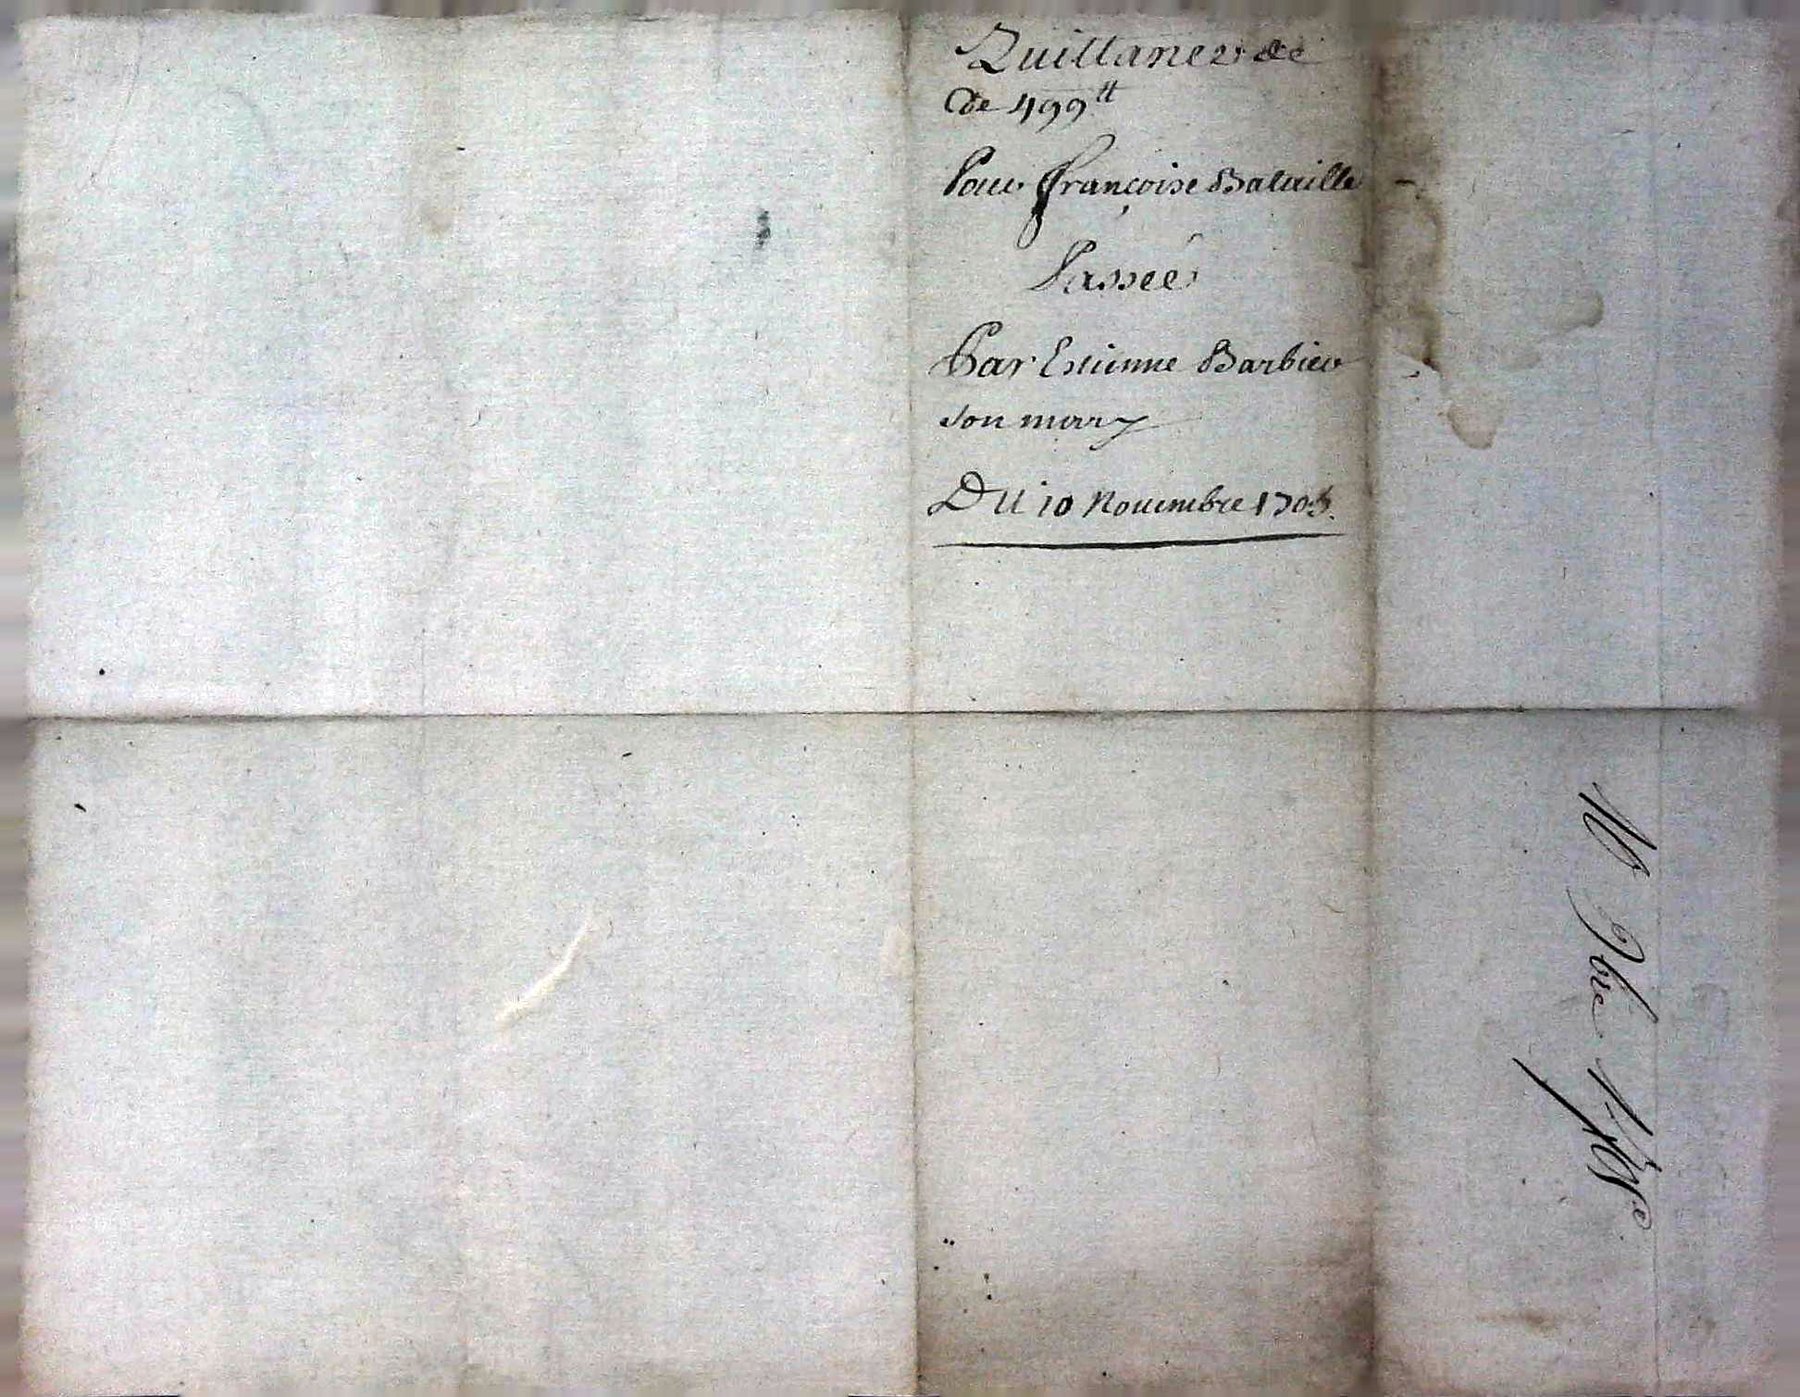 Quittance de
de 499ᵗᵗ
Pour françoise Bataille
Passée
Par Estienne Barbier
son mary
Du 10 Novembre